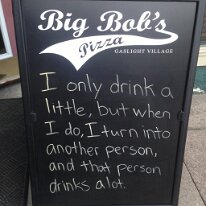 Big Bob's
Pizza
GASLIGHT VILLAGE
I only drink a
little, but when
I do, I turn into
another person,
and that person
drinks alot.